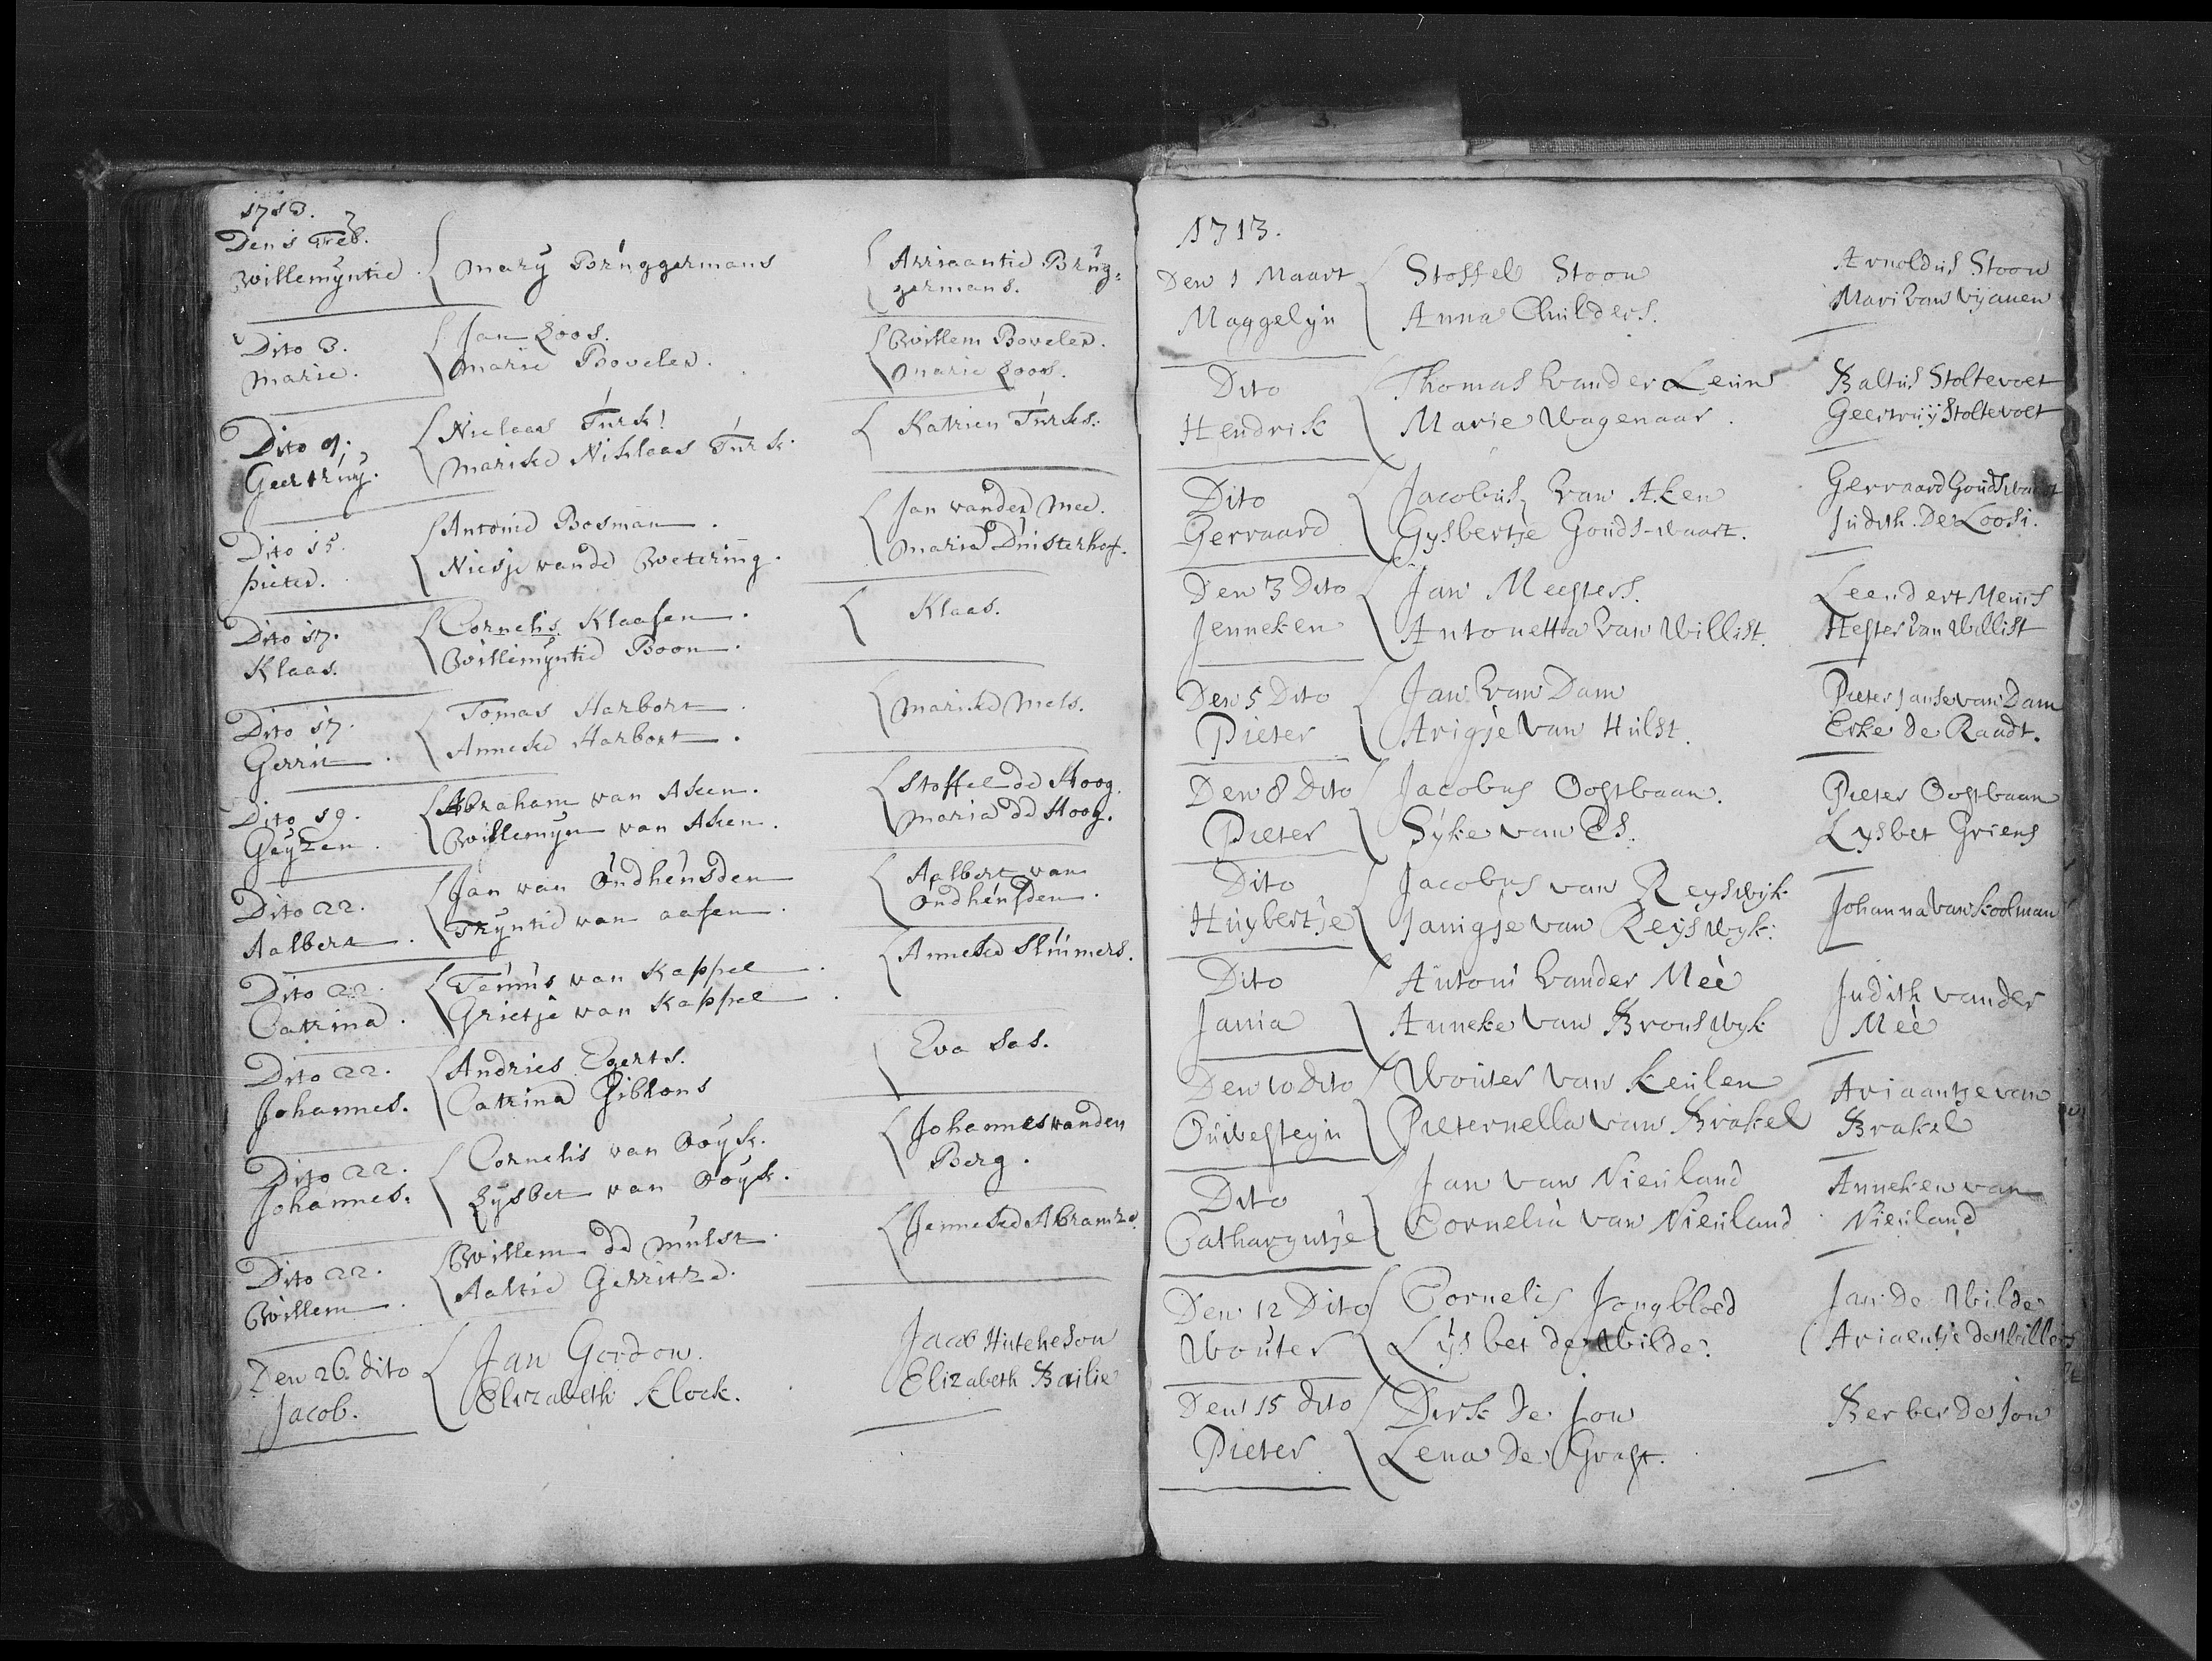 1713.
Den 1 Feb.
Willemÿntie
Mary Brúggermans
Arriaantie Brúg:
germans.
Dito 3.
Marie.
Jan Loos.
Marie Bovelen.
Willem Bovelen.
Marie Loos.
Dito 9.
Geertrúÿ.
Niclaas Túrk
Marike Niklaas Túrk.
Katrien Túrks.
Dito 15.
Pieter.
Antonie Bosman.
Niesje vande Wetering.
Jan vander Mee.
Maria Duisterhof.
Dito 17.
Klaas.
Cornelis Klaasen.
Willemÿntie Boon.
Klaas.
Dito 17.
Gerrit.
Tomas Harbort.
Anneke Harbort.
Marike Mels.
Dito 19.
Geyzen.
Abraham van Aken.
Willemyn van Aken.
Stoffel de Hoog.
Maria de Hoog.
Dito 22.
Aalbert.
Jan van Oudheusden
Tryntie van aasen.
Aalbert van
Oudheusden.
Dito 22.
Catrina.
Teunis van Kappel
Grietje van Kappel
Anneke Slimmers.
Dito 22.
Johannes.
Andries Egerts.
Catrina Gibbons
Eva Sas.
Dito 22.
Johannes.
Cornelis van Ooyk.
Lysbet van Ooyk.
Johannes vanden
Berg.
Dito 22.
Willem.
Willem de Mulst.
Aaltie Gerritze.
Jenneke Abramze.
Den 26 dito
Jacob.
Jan Gordon.
Elizabeth Klock.
Jacob Hutcheson
Elizabeth Bailie
1713.
Den 1 Maart
Maggelyn
Stoffel Stoon
Anna Childers.
Arnoldus Stoon
Mari van Vijanen
Dito
Hendrik
Thomas vander Leun
Marie Wagenaar.
Baltus Stoltevoet
Geertruÿ Stoltevoet
Dito
Gerraard
Jacobus van Aken
Gysbertje Gouds-waart.
Gerraard Goudswaart
Judith De Loosi.
Den 3 Dito
Jenneken
Jan Meesters.
Antonetta van Willist.
Leendert Meuis
Hester van Willist
Den 5 Dito
Pieter
Jan van Dam
Arigje van Hulst.
Pieter Janse van Dam
Erke de Raadt.
Den 8 Dito
Pieter
Jacobus Oostbaan.
Syke van Es.
Pieter Oostbaan
Lysbet Griens
Dito
Huybertje
Jacobus van Reyswyk
Janigje van Reyswyk.
Johanna van Koolman
Dito
Jania
Antoni vander Meè
Anneke van Bronswyk
Judith vander
Meè
Den 10 dito
Ouwesteyn
Wouter van Keulen
Pieternella van Brakel
Ariaantje van
Brakel
Dito
Catharyntje
Jan van Nieuland
Cornelia van Nieuland
Anneken van
Nieuland
Den 12 Dito
Wouter
Cornelis Jongbloed
Lysbet de Wilde.
Jan De Wilde
Ariaentje de Willers
Den 15 dito
Pieter
Dirk de Jon
Lena de Graft.
Berber de Jon